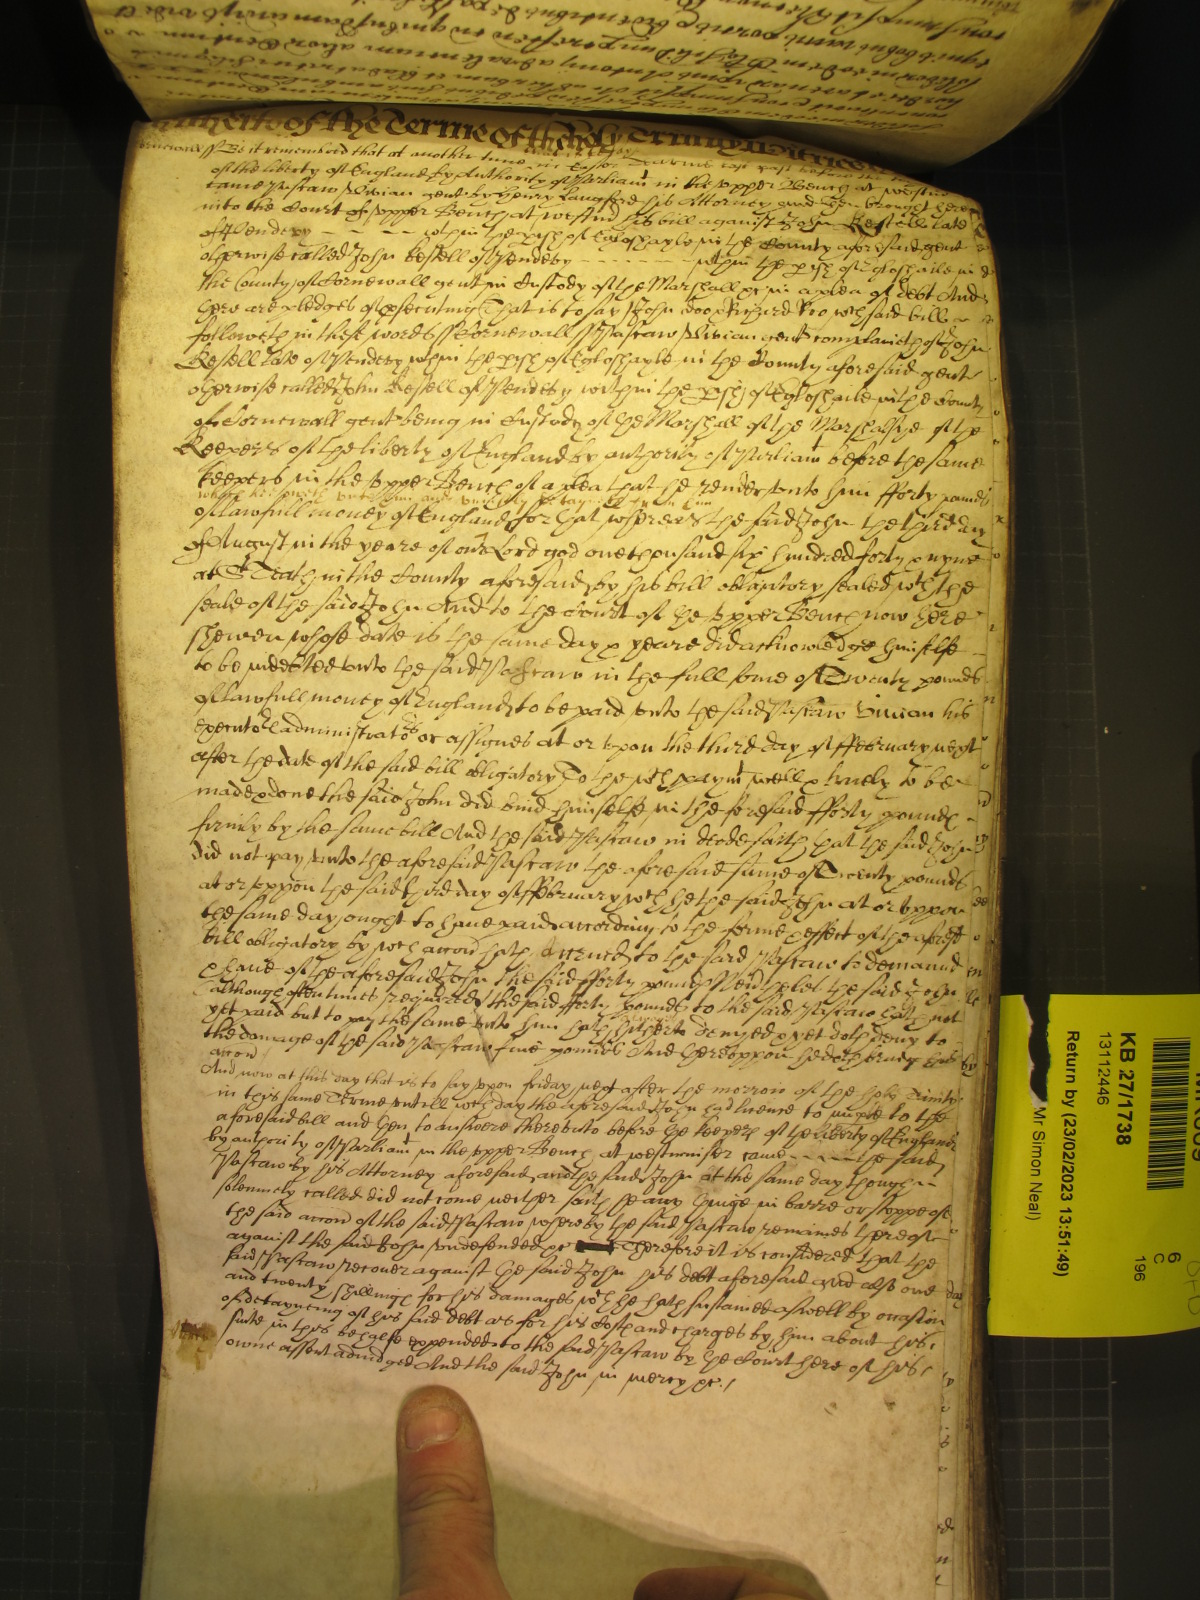 of the Terme of the holy Trinity Witnes
Cornewall ss Be it remembred that at another time in Easter Terme last past before the
of the liberty of England by Authority of Parliamt in the upper Bench at Westm
came Pascaw Vivian gent by Henry Langford his Attorney and then brought here
into the Court of upper Bench at westmr his bill against John Kestell late
of Pendevy - - - - wthin the pish of Egloshayle in the County aforesaid gent
otherwise called John Kestell of Pendevy - - - - - - wthin the pish of Egloshaile in the
County of Cornewall gent in Custody of the Marshall &c in a plea of debt And
there are pledges of prosecuting That is to say John Doo & Richard Roo wch said bill
followeth in these words ss Cornewall ss Pascaw Vivian gent complaineth of John
Kestell late of Pendevy wthin the pish of Egloshayle in the County aforesaid gent
otherwise called John Kestell of Pendevy within the pish of Egloshaile in the County
of Cornewall gent being in Custody of the Marshall of the Marshalsye of the
Keepers of the liberty of England by authority of Parliamt before the same
keepers in the upper Bench of a plea that he render unto him fforty pounds
of lawfull money of England which he oweth unto him and unjustly detayneth from him for that whereas the said John the third day
of August in the yeare of our Lord god one thousand six hundred forty & nyne
at St Teath in the County aforesaid by his bill obligatory sealed wth the
seale of the said John And to the Court of the upper Bench now here
shewen whose date is the same day & yeare did acknowledge himselfe
to be indebted unto the said Pascaw in the full some of Twenty pounds
of lawfull money of England to be paid unto the said Pascaw Vivian his
executors administrators or assignes at or upon the third day of ffebruary next
after the date of the said bill obligatory To the wch paymt well & truely to be
made & done the said John did bind himselfe in the foresaid fforty pounds
firmly by the same bill And the said Pascaw in deede saith that the said John
did not pay unto the aforesaid Pascaw the aforesaid summe of Twenty pounds
at or uppon the said third day of ffebruary wch he the said John at or uppon
the same day ought to have paid according to the forme & effect of the aforesd
bill obligatory by wch accon hath accrued to the said Pascaw to demaund
& have of the aforesaid John the said fforty pounds Neverthelesse the said John
although oftentimes required the said fforty pounds to the said Pascaw hath not
yet paid but to pay the same unto him hath hitherto denyed & yet doth deny to
the damage of the said Pascaw five pounds And thereuppon he doth bring his
accon
And now at this day that is to say upon friday next after the morrow of the holy Trinity
in this same Terme untill wch day the aforesaid John had licence to imparle to the
aforesaid bill and then to answere thereunto before the keepers of the liberty of England
by authority of Parliamt in the upper Bench at westminster came - - - - the said
Pascaw by his Attorney aforesaid and the said John at the same day though
solemnely called did not come neither saith he any thinge in barre or stoppe of
the said accon of the said Pascaw whereby the said Pascaw remaines thereof
against the said John undefended &c Therefore it is considered that the
said Pascaw recover against the said John his debt aforesaid and also one
and twenty shillings for his damages wch he hath sustained aswell by occasion
of detayneing of his said debt as for his Costs and charges by him about his
suite in this behalfe expended to the said Pascaw by the Court here of his
owne assent adjudged And the said John in mercy &c
KB 27/1738
13112446
Return by (23/02/2023 13:51:49)
Mr Simon Neal)
6
C
196